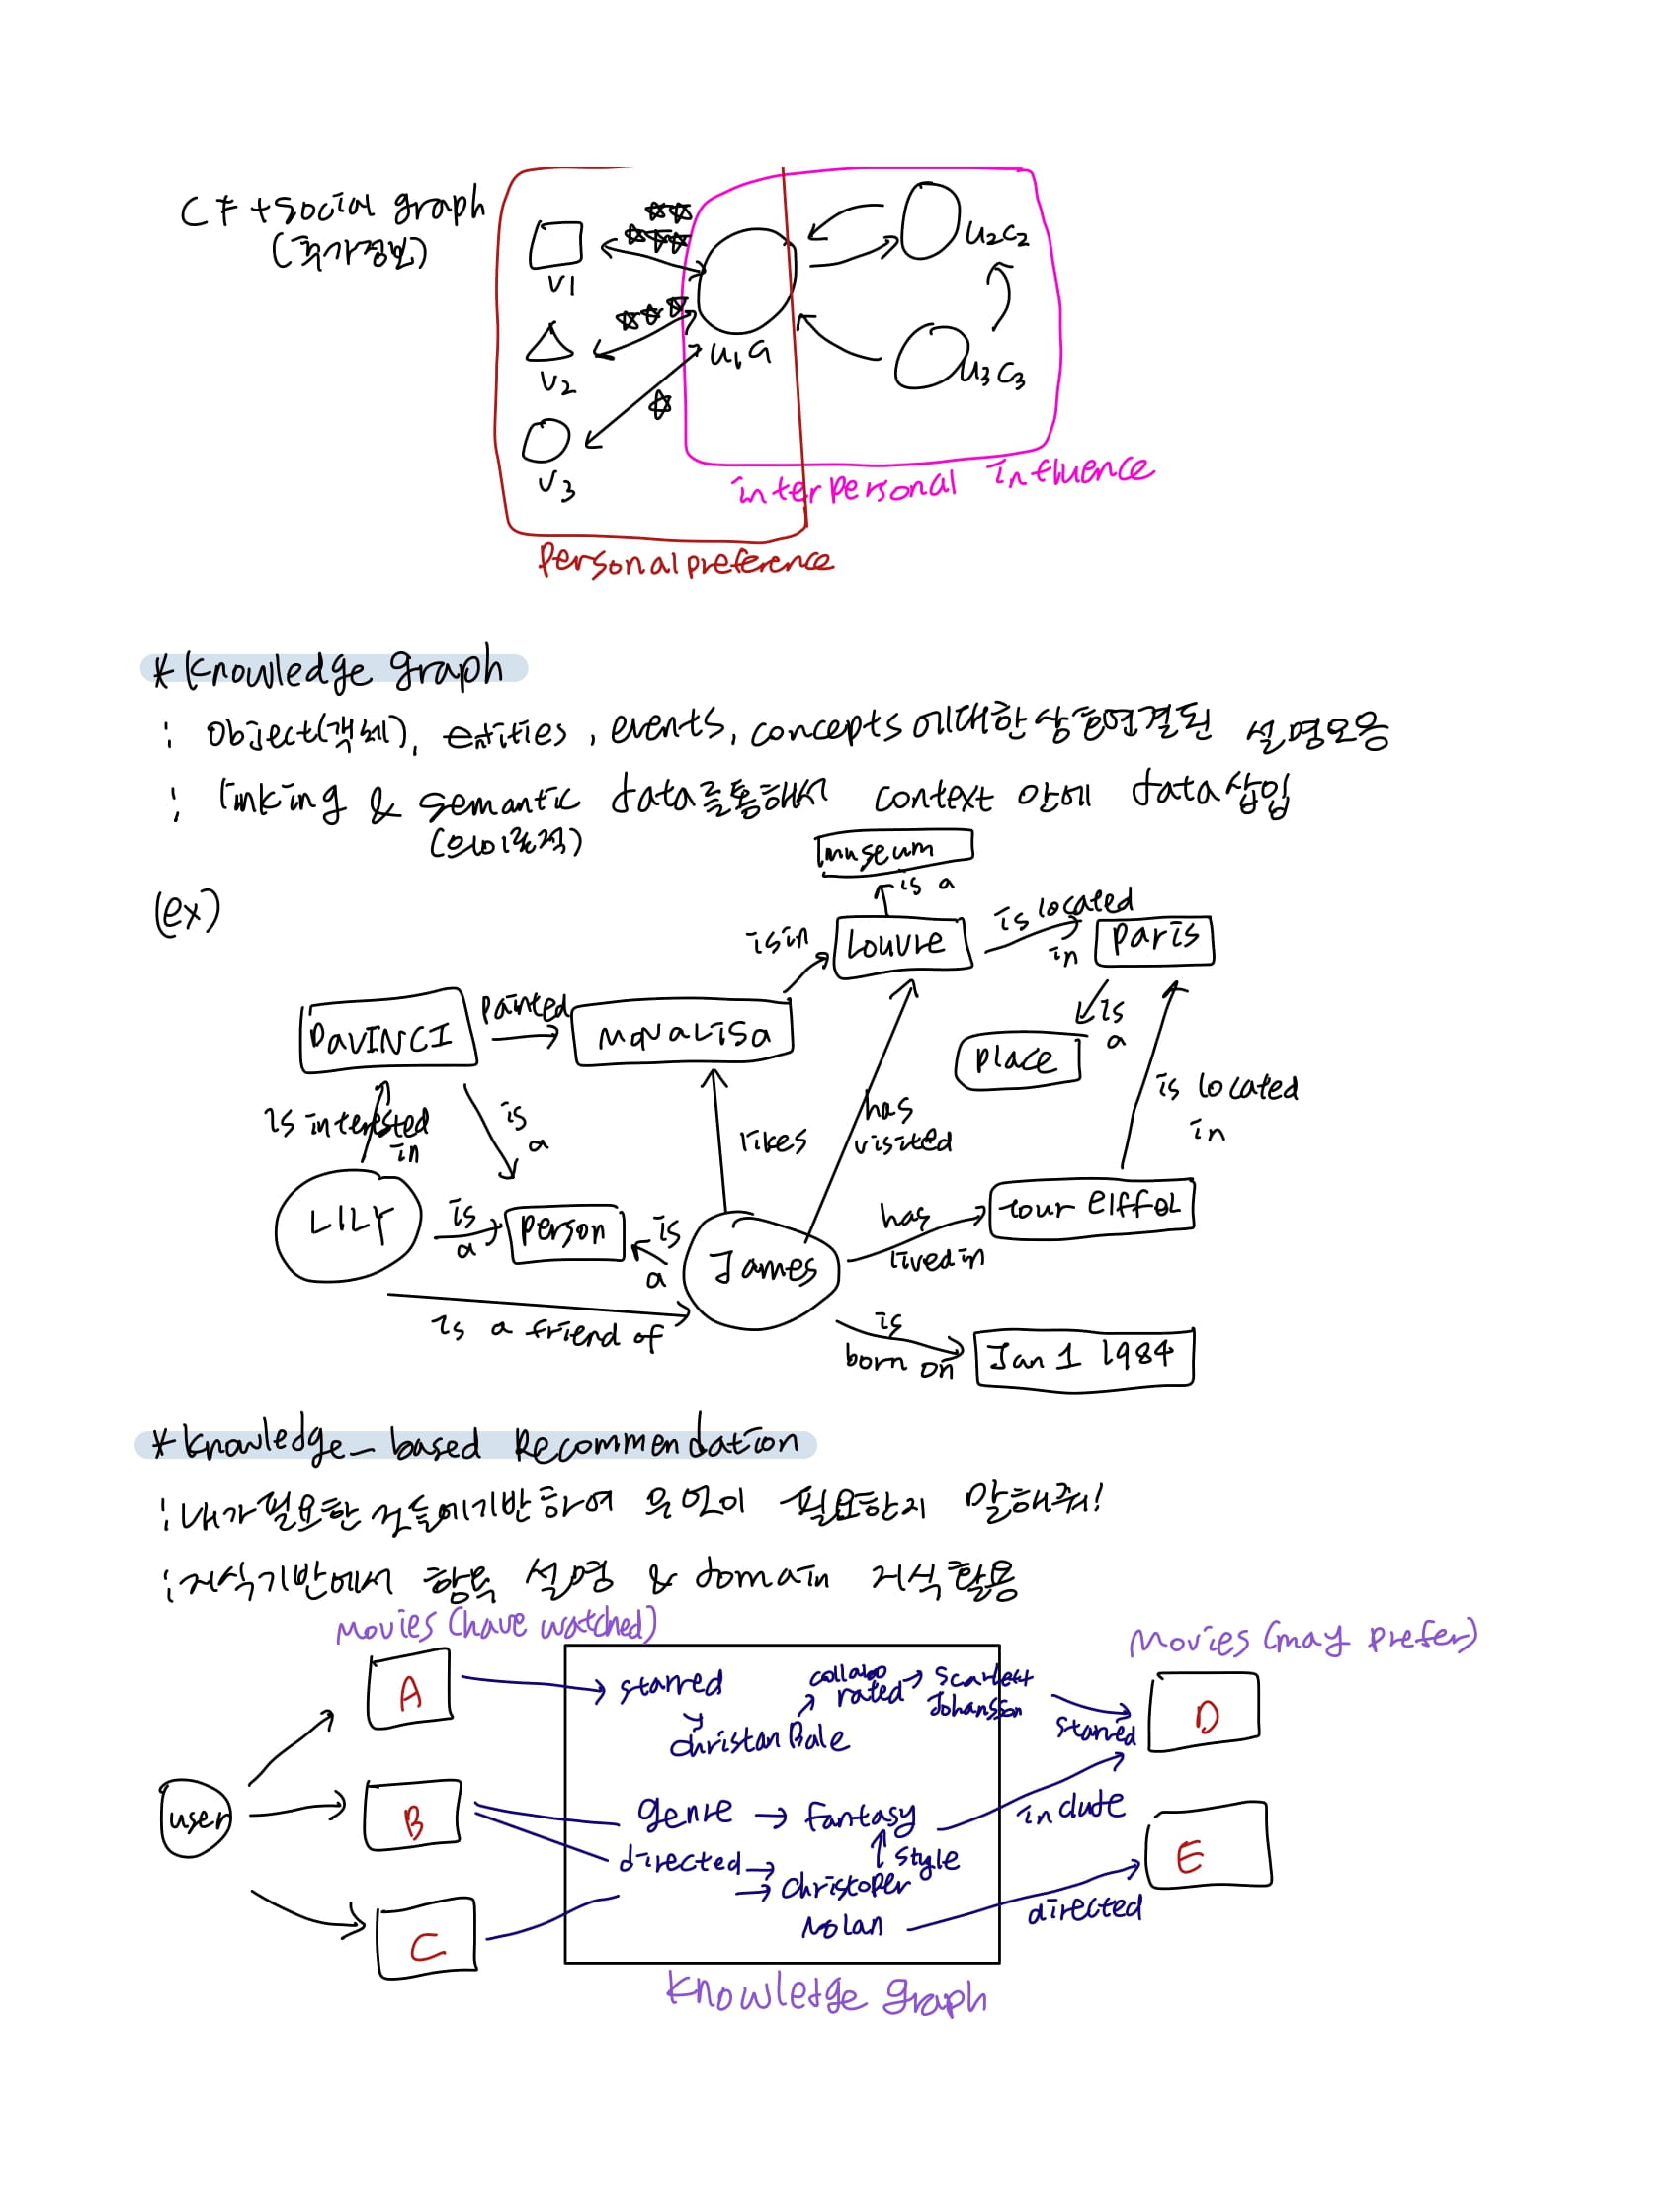 CF + social graph
(추가정보)
v1
v2
v3
u1, a
u2c2
u3c3
interpersonal influence
Personal preference
*Knowledge graph
: Object(객체), entities, events, concepts에대한상호연결된 설명모음
: linking & semantic data를통해서 context 안에 data삽입
(의미론적)
(ex)
museum
is a
is in
Louvre
is located in
Paris
DaVINCI
painted
MONALISA
is a
Place
is interested in
is a
likes
has visited
is located in
LILY
is a
Person
is a
James
has lived in
tour EIFFEL
is a friend of
is born on
Jan 1 1984
*Knowledge-based Recommendation
: 내가필요한 것들에기반하여 무엇이 필요한지 말해줘!
: 지식기반에서 항목 설명 & domain 지식활용
Movies (have watched)
Movies (may prefer)
A
starred
christan Bale
collabo rated
Scarlett Johansson
starred
D
user
B
genre
fantasy
include
style
directed
christoper Nolan
directed
E
C
Knowledge graph